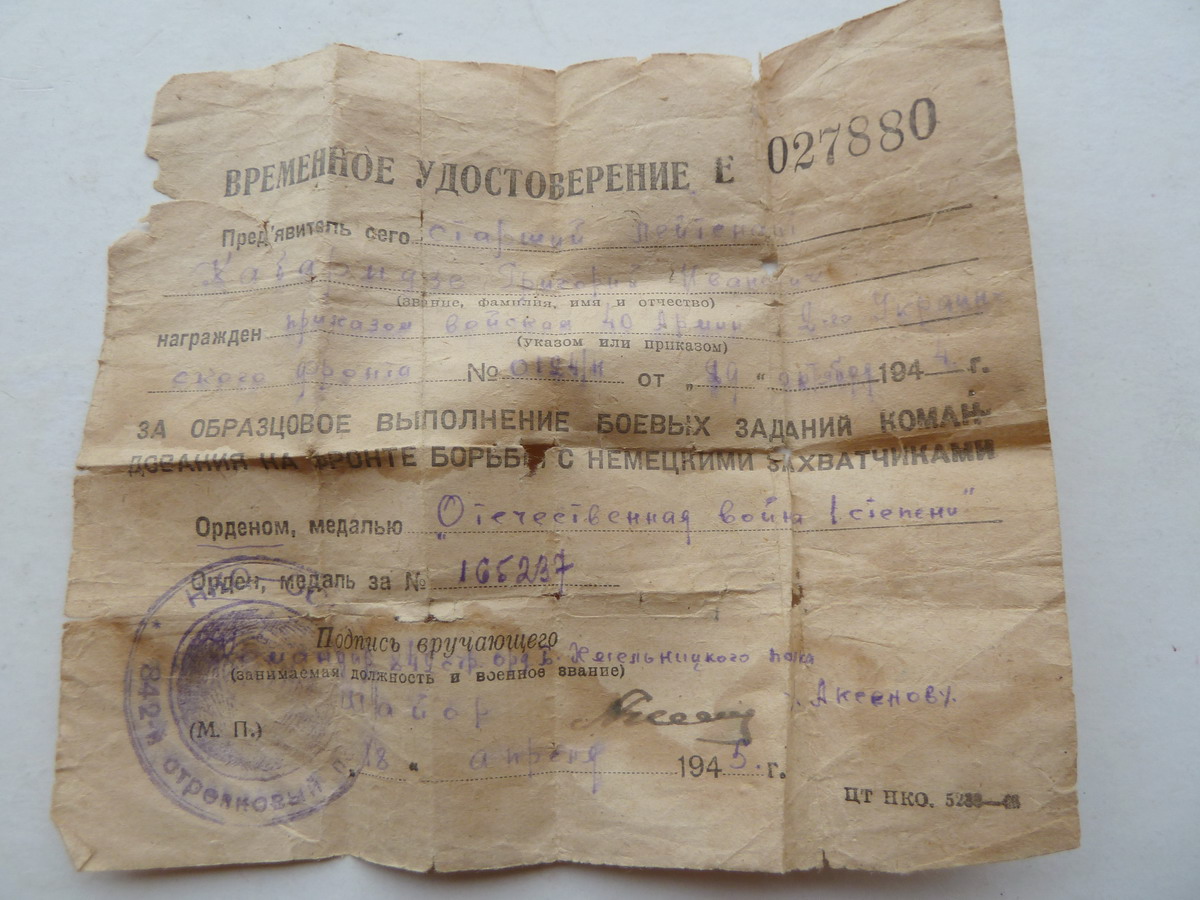 ВРЕМЕННОЕ УДОСТОВЕРЕНИЕ Е 027880
Пред'явитель сего старший лейтенант
Григорий Иванович
(звание, фамилия, имя и отчество)
награжден приказом войскам 40 Армии 2-го Украин-
(указом или приказом)
ского фронта № от „ “ 194 4 г.
ЗА ОБРАЗЦОВОЕ ВЫПОЛНЕНИЕ БОЕВЫХ ЗАДАНИЙ КОМАН-
ДОВАНИЯ НА ФРОНТЕ БОРЬБЫ С НЕМЕЦКИМИ ЗАХВАТЧИКАМИ
Орденом, медалью „Отечественная война I степени"
Орден, медаль за № 165237
Подпись вручающего
Командир 842 стр. орд. Б. Хмельницкого полка
(занимаемая должность и военное звание)
Майор Аксенов
(М. П.)
„18 “ апреля 194 5. г.
ЦТ НКО.
НКО СССР
842-й стрелковый